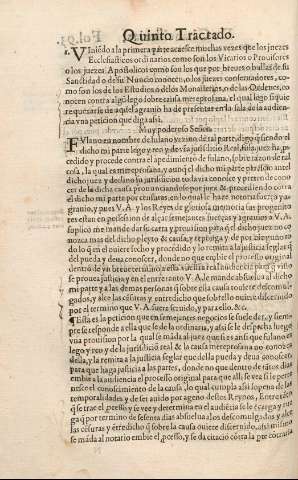 Quinto Tractado.
1. Viniẽdo a la primera parte acaesce muchas vezes que los juezes
Ecclesiasticos ordinarios como son los Vicarios o Prouisores
o los juezes Apostolicos como son los que por breues o bullas de su
Sanctidad o de su Nuncio conocen, o los juezes conseruadores, co
mo son los de los Estudios o delos Monasterios, o de las Ordenes, co
nocen contra algũ lego sobre causa mere prophana, el qual lego si quie
re quexarse de aq̃l agrauio ha de presentar en la sala de la audien-
cia vna peticion que diga assi.
Muy poderoso Señor.
Fulano en nombre de fulano vezino de tal parte, digo q̃ siendo el
dicho mi parte lego y reo y de vr̃a jurisdicion Real, fulã juez ha, p
cedido y procede contra el a pedimento de fulano, sobre razon de tal
cosa, la qual es mere prophana, y aunq̃ el dicho mi parte
dicho juez y declino su jurisdicion toda via conoce y pretende conos
cer de la dicha causa pronunciandose por juez & procediendo contra
el dicho mi parte por censuras, en lo qual le haze notoria fuerça y a-
grauio, y pues V. A. y los Reyes de gloriosa memoria sus progenito
res estan en possession de alçar semejantes fuerças y agrauios a V. A.
suplico me mande dar su carta y prouision para q̃ el dicho juez no co
nozca mas del dicho pleyto & causa, y reponga y de por ninguno to
do lo q̃ en el ouiere fecho y procedido y lo remita a la justicia seglar q̃
del pueda y deua conoscer, donde no que enbie el processo original
dentro de vn breue termino a esta vr̃a Real para q̃ en ella visto
se prouea justicia y en el entre tanto V. A. le mande absoluer al dicho
mi parte y a las demas personas q̃ sobre esta causa touiere descomul-
gados, y alce las censuras y entredicho que sobre ello ouiere discernido
por el termino que V. A. fuere seruido, y para ello. &c.
¶ Esta es la peticion que en semejantes negocios se suele dar, y siem
pre se responde a ella que se de la ordinaria, y assi se le despacha luego
vna prouision por la qual se mãda al juez que si es ansi que fulano es
lego y reo y de la jurisdicion real & la causa prophana no conozca
della, y la remita a la justicia seglar que della pueda y deua conoscer
para que haga justicia a las partes, donde no que dentro de tãtos dias
embie a la audiencia el processo original para que alli, se vea si le perte
nesce el conoscimiento de la causa, lo qual cumpla assi so pena de las
temporalidades y de ser auido por ageno destos Reynos, Entre tanto
q̃ se trae el processo y se vee y determina en el audiẽcia se le encarga y mã
da q̃ por termino de sesenta dias absuelua a los descomulgados y alce
las censuras y entredicho q̃ sobre la causa ouiere discernido, assi mismo
se mãda al notario embie el processo, y se da citacion cõtra la pte contraria